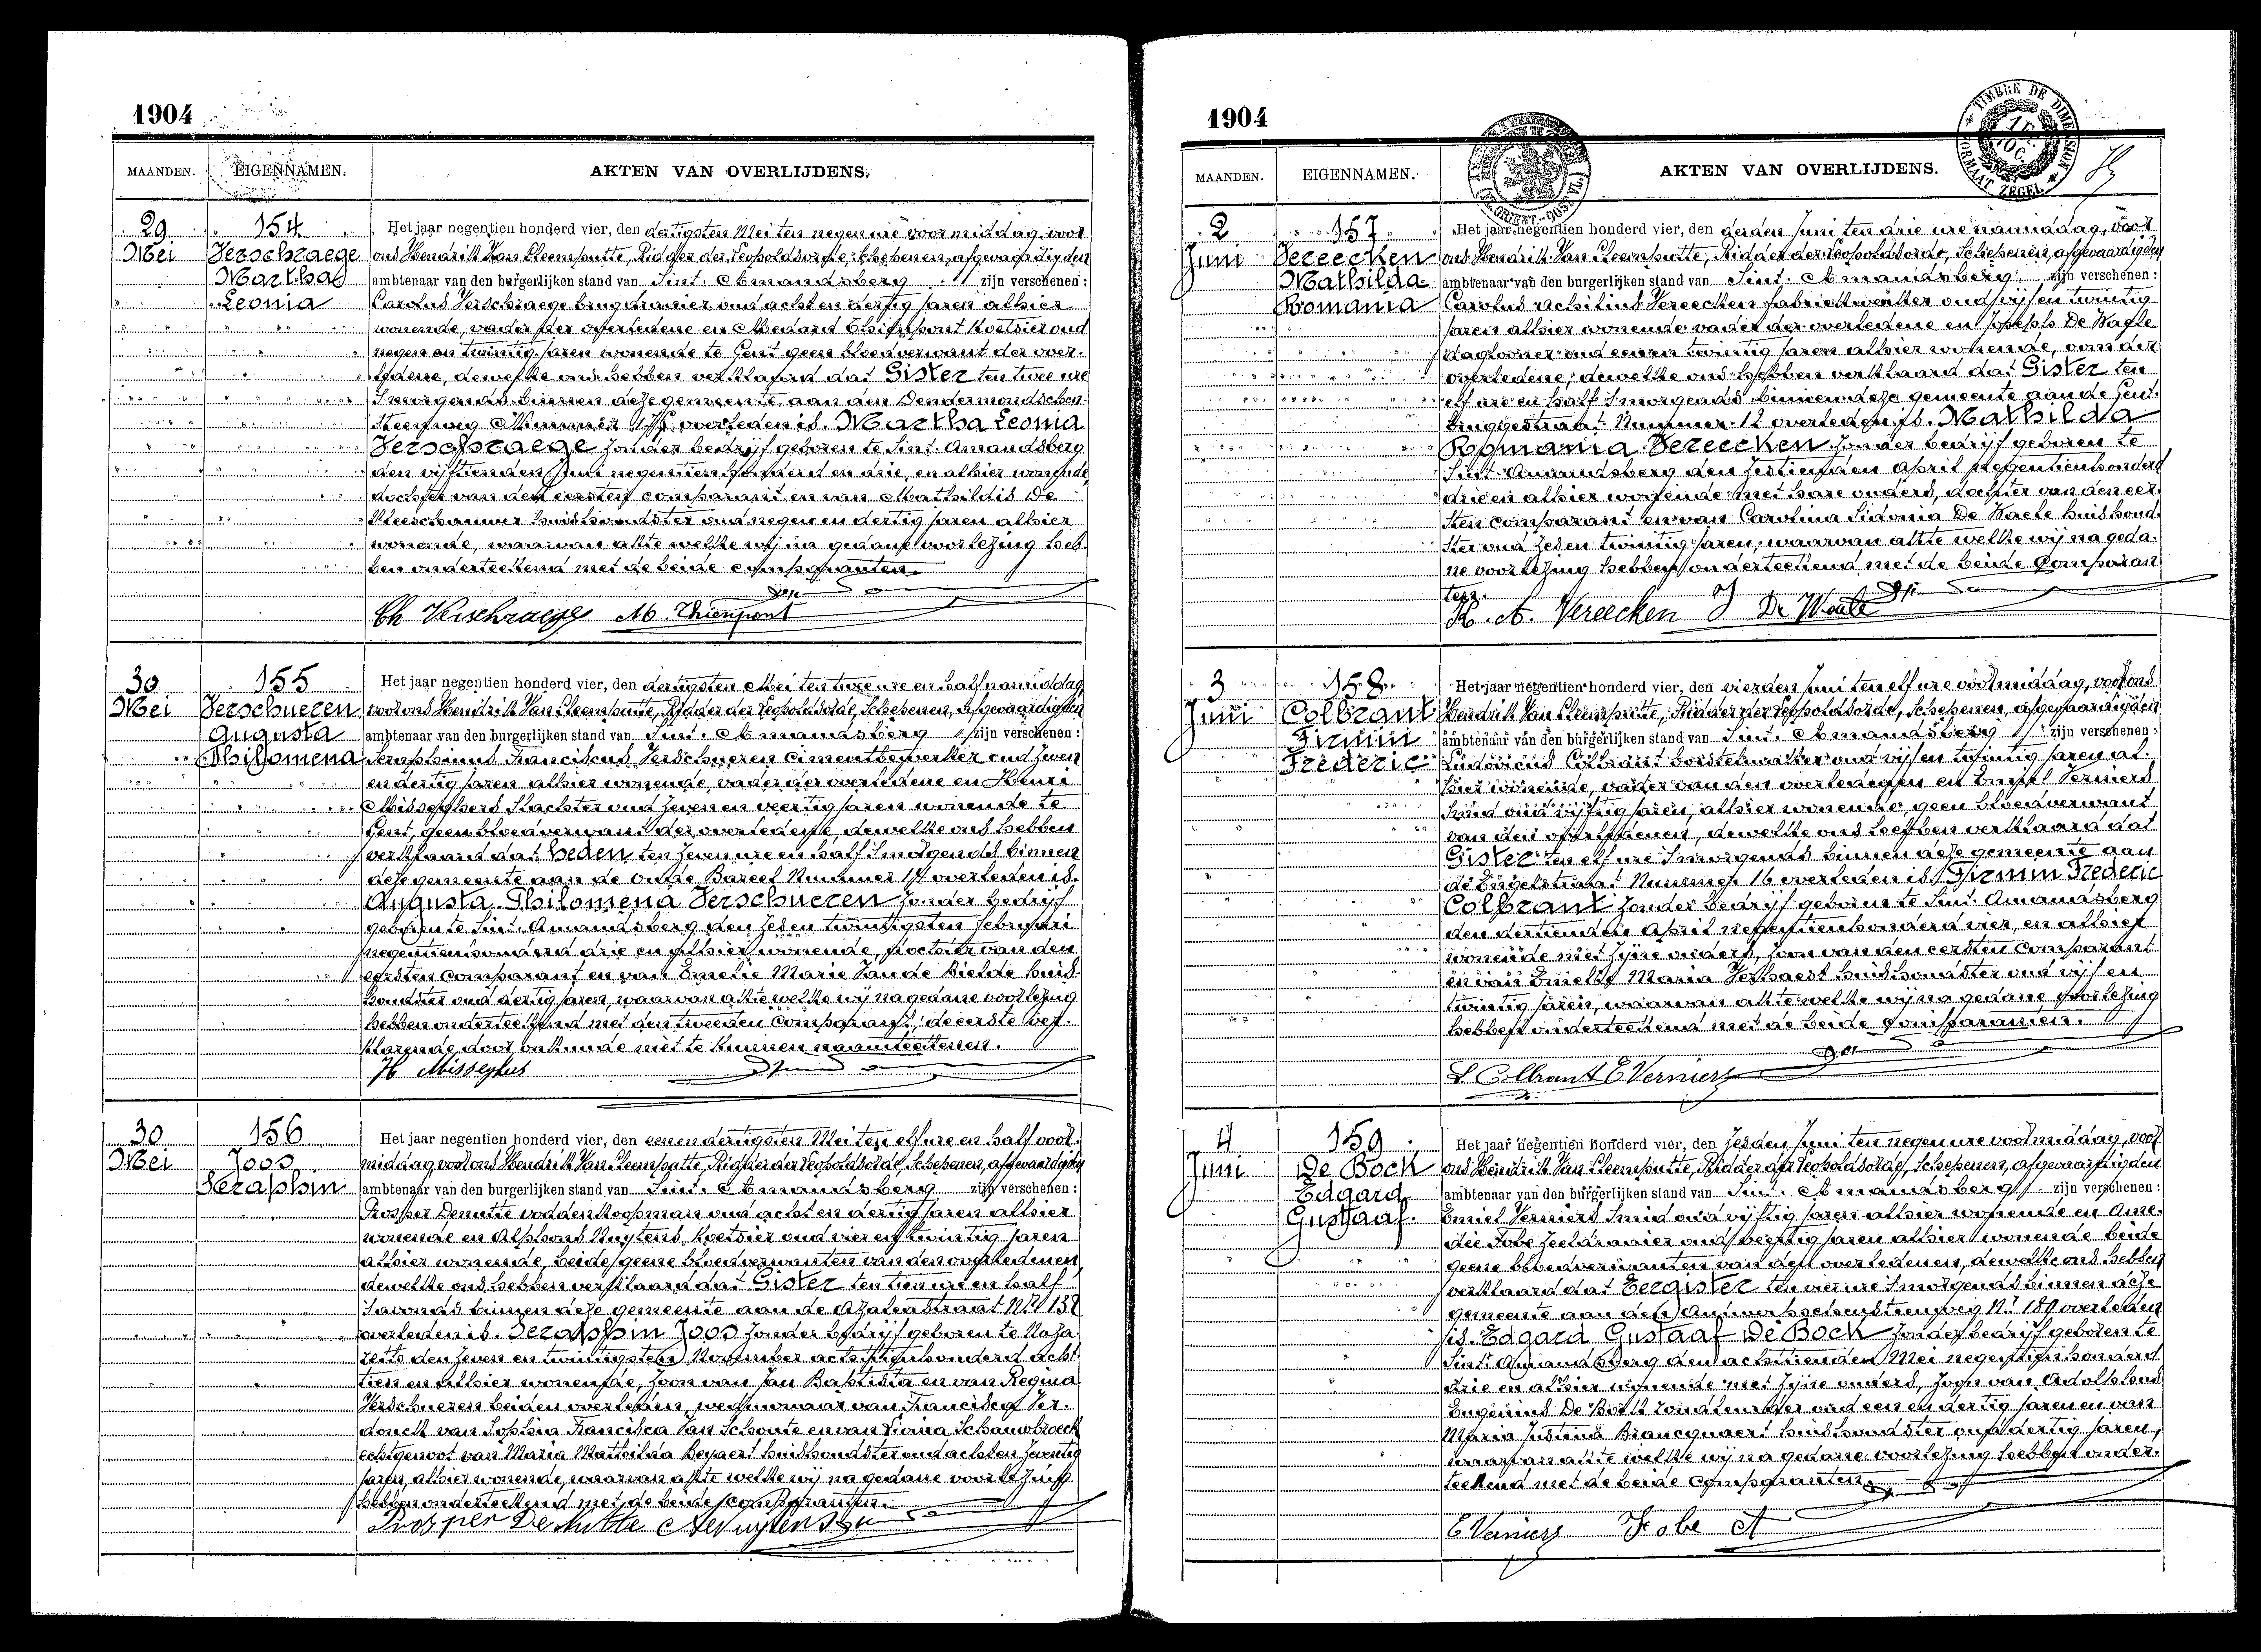 1904
MAANDEN. EIGENNAMEN. AKTEN VAN OVERLIJDENS.
29 Mei
154
Verschraege
Martha
Leonia
Het jaar negentien honderd vier, den dertigsten Mei ten negen ure voormiddag, voor
ons Hendrik Van Cleemputte, Ridder der Leopoldsorde, Schepenen, afgevaardigden
ambtenaar van den burgerlijken stand van Sint. Amandsberg zijn verschenen:
Carolus Verschraege oud acht en dertig jaren alhier
wonende, vader der overledene en Medard Thienpont Koetsier oud
negen en twintig jaren wonende te Gent geen bloedverwant der over-
ledene, dewelke ons hebben verklaard dat Gister ten twee ure
's morgends binnen deze gemeente aan den Dendermondschen
Steenweg Nummer overleden is. Martha Leonia
Verschraege zonder bedrijf geboren te Sint. Amandsberg
den vijftienden Juni negentien honderd en drie, en alhier wonende,
dochter van den eersten comparant en van Mathildis De
Vleeschauwer huishoudster oud negen en dertig jaren alhier
wonende, waarvan akte welke wij na gedane voorlezing heb-
ben onderteekend met de beide comparanten.
Ch Verschraege M. Thienpont
30 Mei
155
Verschueren
Augusta
Philomena
Het jaar negentien honderd vier, den dertigsten Mei ten twee ure en half namiddag
voor ons Hendrik Van Cleemputte, Ridder der Leopoldsorde, Schepenen, afgevaardigden
ambtenaar van den burgerlijken stand van Sint. Amandsberg zijn verschenen:
Seraphinus Franciscus Verschueren Cimentbewerker oud zeven
en dertig jaren alhier wonende, vader der overledene en Henri
Misseghers Slachter oud zeven en veertig jaren wonende te
Gent, geen bloedverwant der overledene, dewelke ons hebben
verklaard dat Heden ten zeven ure en half 's morgends binnen
deze gemeente aan de Oude Bareel Nummer 14 overleden is.
Augusta Philomena Verschueren zonder bedrijf
geboren te Sint. Amandsberg den zes en twintigsten februari
negentienhonderd drie en alhier wonende, dochter van den
eersten comparant en van Emelie Marie Van de Bielde huis-
houdster oud dertig jaren, waarvan akte welke wij na gedane voorlezing
hebben onderteekend met den tweeden Comparant, de eerste ver-
klarende door onkunde niet te kunnen naamteekenen.
H Misseghers
30 Mei
156
Joos
Seraphin
Het jaar negentien honderd vier, den eenen dertigsten Mei ten elf ure en half voor-
middag voor ons Hendrik Van Cleemputte, Ridder der Leopoldsorde, Schepenen, afgevaardigden
ambtenaar van den burgerlijken stand van Sint. Amandsberg zijn verschenen:
Prosper Demitte voddenkoopman oud acht en dertig jaren alhier
wonende en Alphons Nuytens, Koetsier oud vier en twintig jaren
alhier wonende, beide geene bloedverwanten van den overledenen
dewelke ons hebben verklaard dat Gister ten tien ure en half
's avonds binnen deze gemeente aan de Azaleastraat Nr 138
overleden is. Seraphin Joos zonder bedrijf geboren te Naza-
reth den zeven en twintigsten November achttienhonderd acht-
tien en alhier wonende, zoon van Jan Baptista en van Regina
Verschueren beiden overleden, weduwnaar van Francisca Ver-
donck van Sophia Francisca Van Schoute en van Livina Schauwbroeck
echtgenoot van Maria Mathilda Beyaert huishoudster oud acht en zeventig
jaren, alhier wonende, waarvan akte welke wij na gedane voorlezing
hebben onderteekend met de beide comparanten.
Prosper De Mitte A Nuytens
1904
MAANDEN. EIGENNAMEN. AKTEN VAN OVERLIJDENS.
TIMBRE DE DIMENSION
FORMAAT ZEGEL
2 Juni
157
Vereecken
Mathilda
Romania
Het jaar negentien honderd vier, den derden Juni ten drie ure namiddag, voor
ons Hendrik Van Cleemputte, Ridder der Leopoldsorde, Schepenen, afgevaardigden
ambtenaar van den burgerlijken stand van Sint. Amandsberg zijn verschenen:
Carolus Achilius Vereecken fabriekwerker oud vijf en twintig
jaren alhier wonende vader der overledene en Joseph De Waele
daglooner oud een en twintig jaren alhier wonende, van der
overledene, dewelke ons hebben verklaard dat Gister ten
elf ure en half 's morgends binnen deze gemeente aan de Gent-
bruggestraat Nummer 12 overleden is. Mathilda
Romania Vereecken zonder bedrijf geboren te
Sint. Amandsberg den zestienden April negentienhonderd
drie en alhier wonende met hare ouders, dochter van den eer-
sten comparant en van Carolina Sidonia De Waele huishoud-
ster oud zes en twintig jaren, waarvan akte welke wij na geda-
ne voorlezing hebben onderteekend met de beide Comparan-
ten.
A. Vereecken J De Waele
3 Juni
158
Colbrant
Firmin
Frederic
Het jaar negentien honderd vier, den vierden Juni ten elf ure voormiddag, voor ons
Hendrik Van Cleemputte, Ridder der Leopoldsorde, Schepenen, afgevaardigden
ambtenaar van den burgerlijken stand van Sint. Amandsberg zijn verschenen:
Ludovicus Colbrant borstelmaker oud vijf en twintig jaren al-
hier wonende, vader van den overledenen en Emiel Verniers
Smid oud vijftig jaren, alhier wonende, geen bloedverwant
van den overledenen, dewelke ons hebben verklaard dat
Gister ten elf ure 's morgends binnen deze gemeente aan
de Engelstraat Nummer 16 overleden is Firmin Frederic
Colbrant zonder bedrijf geboren te Sint. Amandsberg
den dertienden April negentienhonderd vier, en alhier
wonende met zijne ouders, zoon van den eersten Comparant
en van Emelie Maria Verhaest huishoudster oud vijf en
twintig jaren, waarvan akte welke wij na gedane voorlezing
hebben onderteekend met de beide Comparanten.
L Colbrant E Verniers
4 Juni
159
De Bock
Edgard
Gustaaf.
Het jaar negentien honderd vier, den zesden Juni ten negen ure voormiddag, voor
ons Hendrik Van Cleemputte, Ridder der Leopoldsorde, Schepenen, afgevaardigden
ambtenaar van den burgerlijken stand van Sint. Amandsberg zijn verschenen:
Emiel Verniers Smid oud vijftig jaren alhier wonende en Ame-
die Fobe Zeeldraaier oud veertig jaren alhier wonende beide
geene bloedverwanten van den overledenen, dewelke ons hebben
verklaard dat Eergister ten vier ure 's morgends binnen deze
gemeente aan den Antwerpschensteenweg Nr 189 overleden
is. Edgard Gustaaf De Bock zonder bedrijf geboren te
Sint Amandsberg den achttienden Mei negentienhonderd
drie en alhier wonende met zijne ouders, zoon van Adolphus
Eugenius De Bock loodbewerker oud een en dertig jaren en van
Maria Justina Brancquaert huishoudster oud dertig jaren,
waarvan akte welke wij na gedane voorlezing hebben onder-
teekend met de beide Comparanten.
E Verniers Fobe A